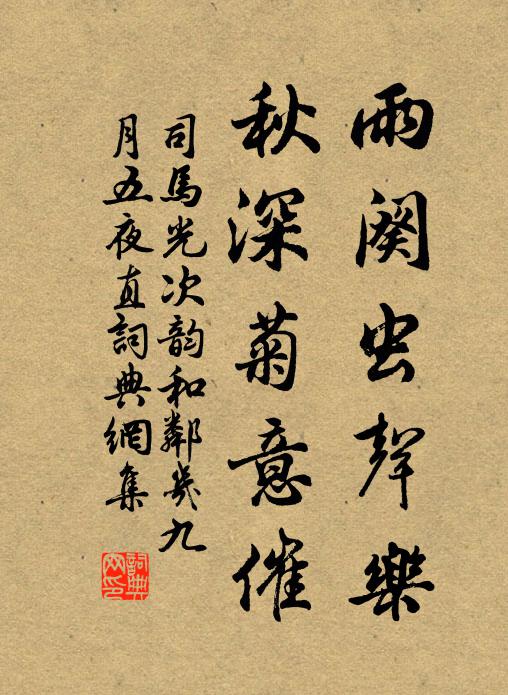 雨闋虫聲樂
秋深菊意催
司馬光次韵和鄰幾九
月五夜直詞典網集
詞典
网印